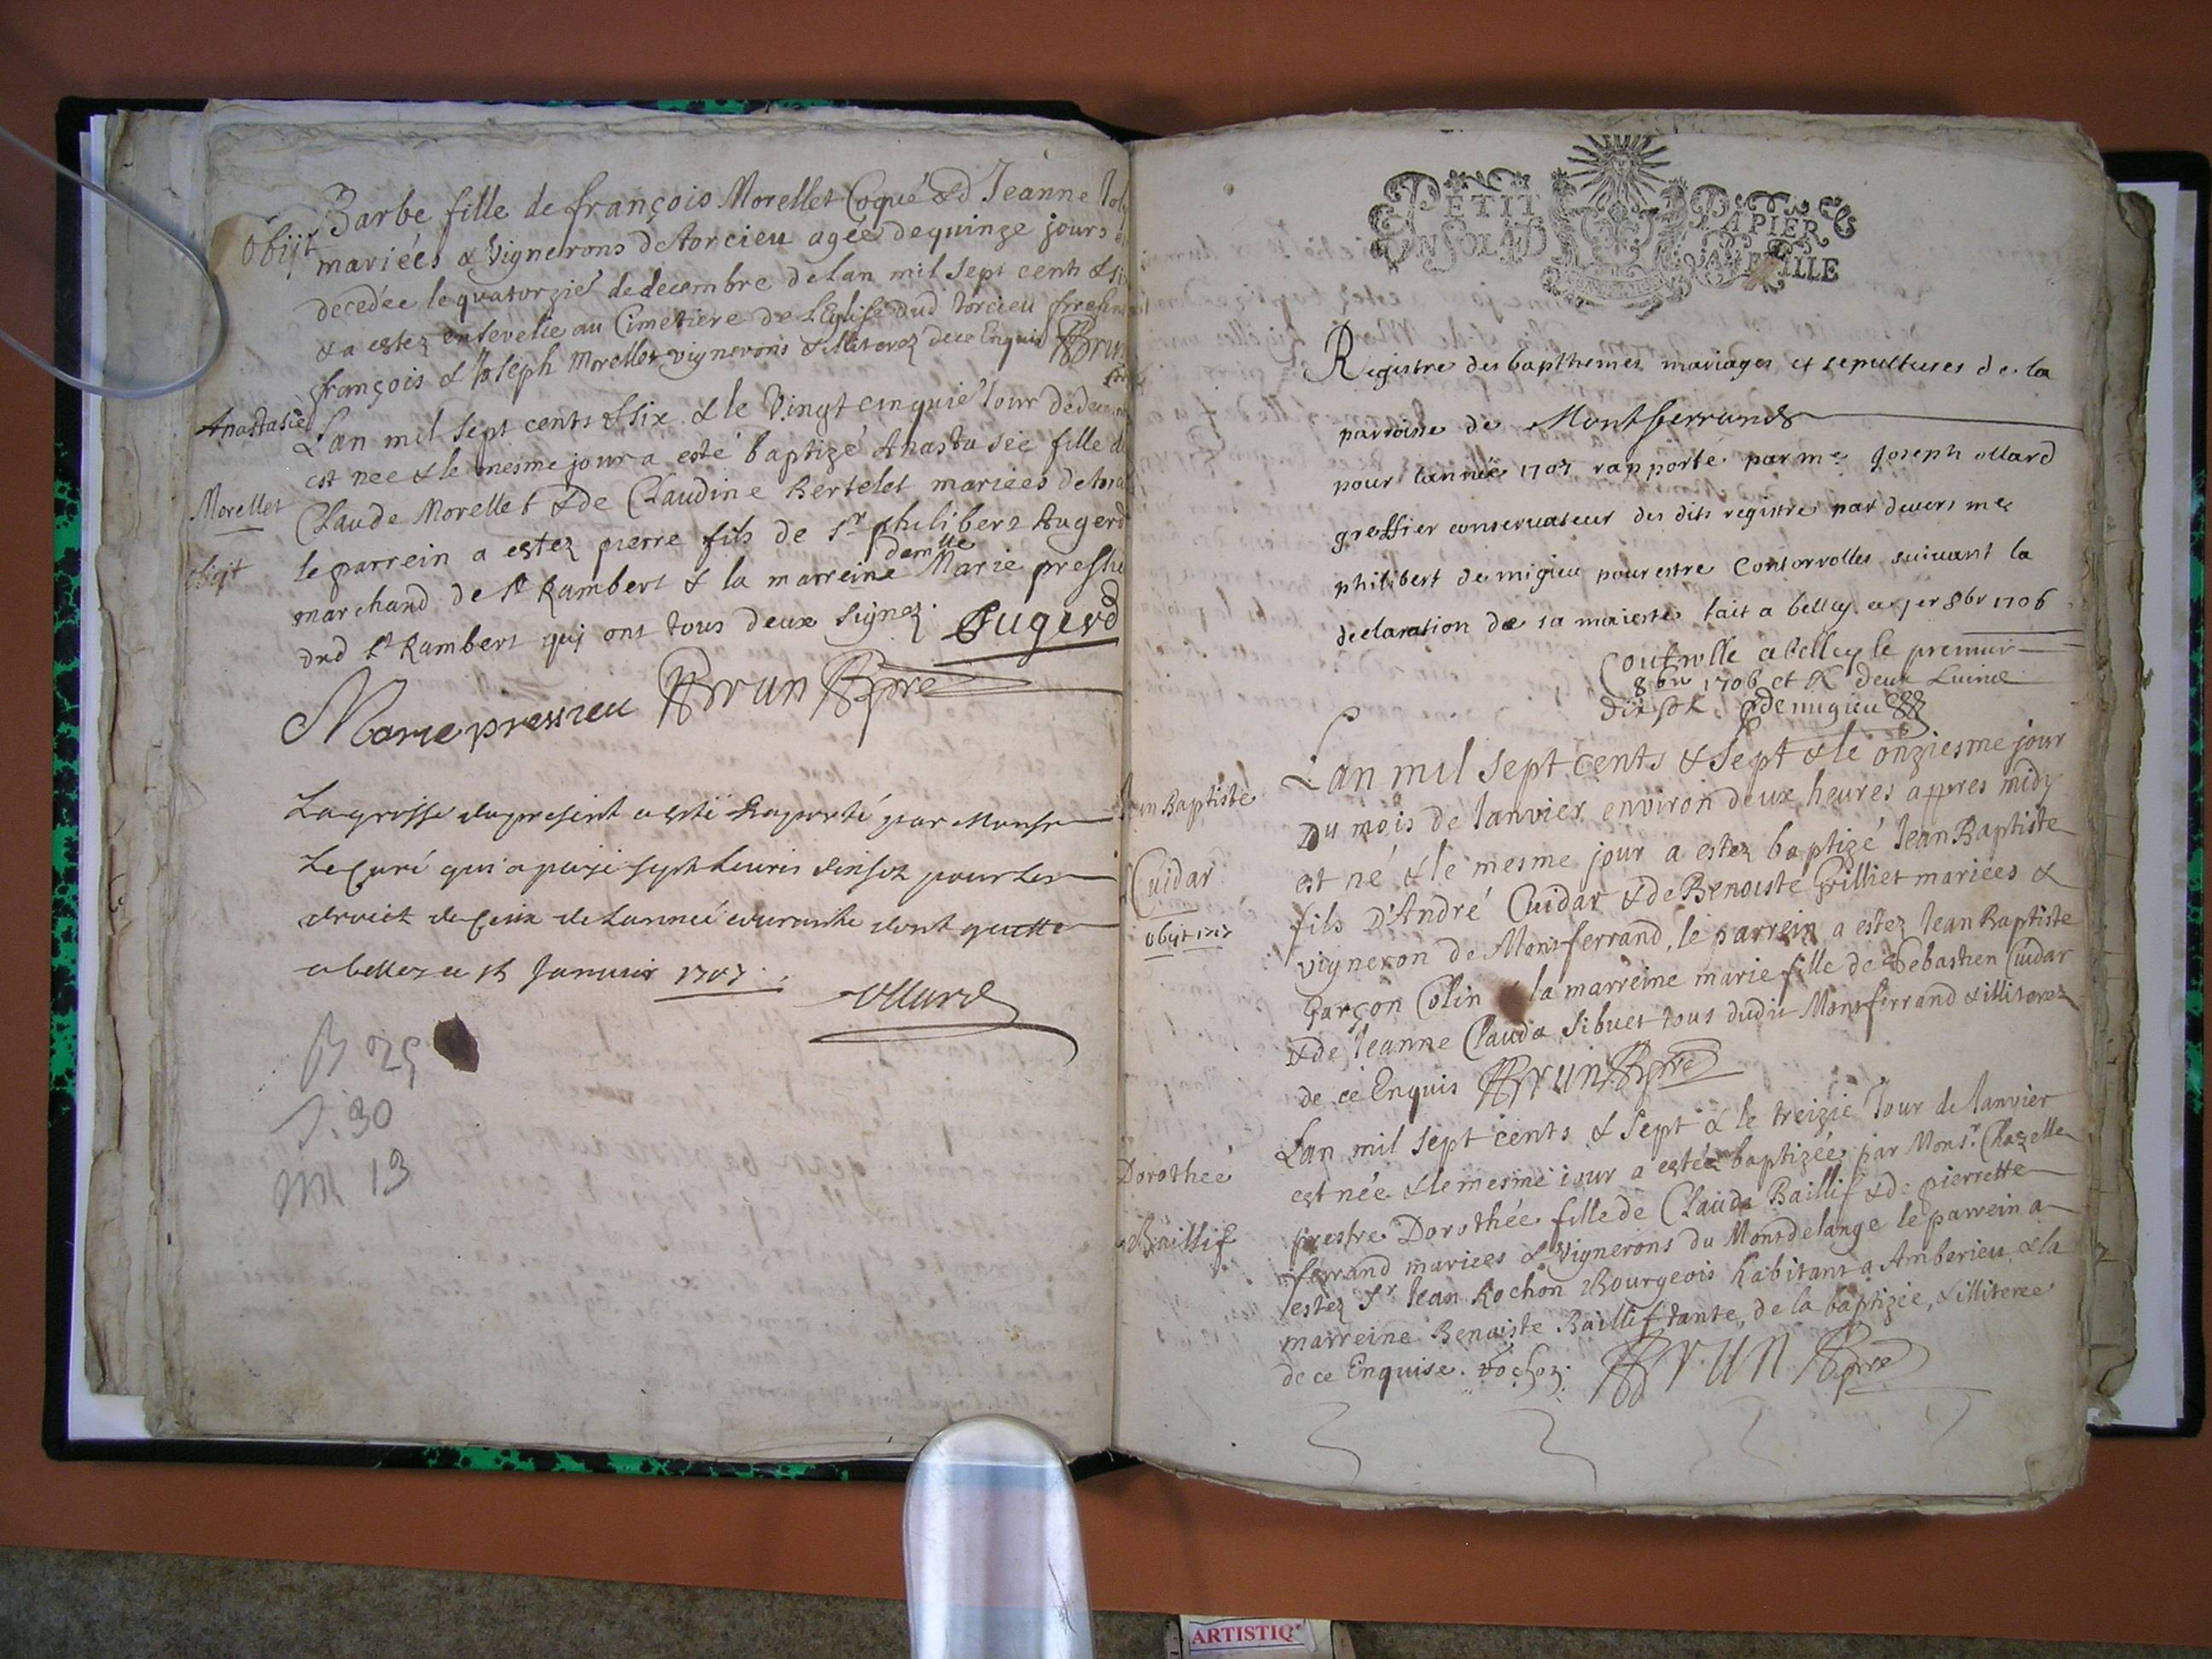 Barbe fille de françois Morellet Coqué & d Jeanne
obijt
mariées & Vignerons de torcieu agée de quinze jours
decedée le quatorzié de decembre de lan mil sept cents & six
& a estez ensevelie au Cimetiere de L'Eglise dud torcieu presens
françois & Joseph Morellet vignerons & illiterez de ce Enquis Brun
Anastasie
Lan mil sept cents & six & le Vingt cinquié Jour de decem
est nee & le mesme jour a esté baptizé Anastasie fille de
Morellet
Claude Morellet & de Claudine Bertelet mariees de
obijt
le parrein a estez pierre fils de Sr philibert Augerd
marchand de St Rambert & la marreine demlle Marie
dud St Rambert qui ont tous deux signez. Augerd
Marie pressieu Brun pre
La grosse du present a esté Raporté par Monsr
Le Curé qui a payé sept livres dix solz pour les
droict de ceux de Lannée courante dont quitte
a belley ce Janvier 1707
ollard
B 25
S. 30
m 13
PETIT PAPIER
UN SOL LA FEUILLE
Registre des bapthemes mariages et sepultures de la
parroisse de Montferrand
pour lannée 1707 rapporté par me Joseph ollard
greffier conservateur des dits registre par devers me
philibert demigieu pour estre Controrolles suivant la
declaration de sa maiesté fait a belley ce jer 8br 1706
Controlle a belley le premier
8bre 1706 et R deux Livre
dix sols demigieu
Lan mil sept cents & sept & le onziesme jour
Jean Baptiste
Du mois de Janvier environ deux heures appres midy
est né & le mesme jour a estez baptizé Jean Baptiste
Cuidar
fils D'André Cuidar & de Benoiste Grilliet mariees &
obijt
vigneron de Montferrand, le parrein a estez Jean Baptiste
garçon Colin & la marreine marie fille de Sebastien Cuidar
& de Jeanne Clauda Sibuet tous dudit Montferrand & illiterez
de ce Enquis Brun pre
Lan mil sept cents & sept & le treizié Jour de Janvier
Dorothée
est née & le mesme iour a estée baptizée par Monsr Chazelle
Baillif
prestre Dorothée fille de Claude Baillif & de pierrette
ferrand mariees & Vignerons du Montdelange le parrein a
estez Sr Jean Rochon Bourgeois habitant a Amberieu & la
marreine Benoiste Baillif tante, de la baptizée, & illiteree
de ce Enquise. Brun pre